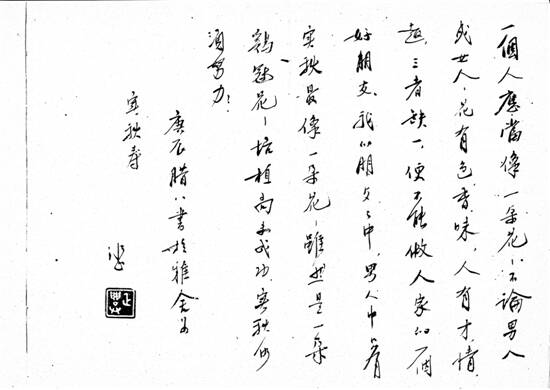 一個人應當像一朵花,不論男人
或女人,花有色香味,人有才情
趣,三者缺一,便不能做人家的一個
好朋友。我的朋友之中,男人中只有
實秋最像一朵花,雖然是一朵
鷄冠花,培植尚未成功,實秋仍
須努力!
庚辰臘八書於雅舍為
實秋壽
冰心